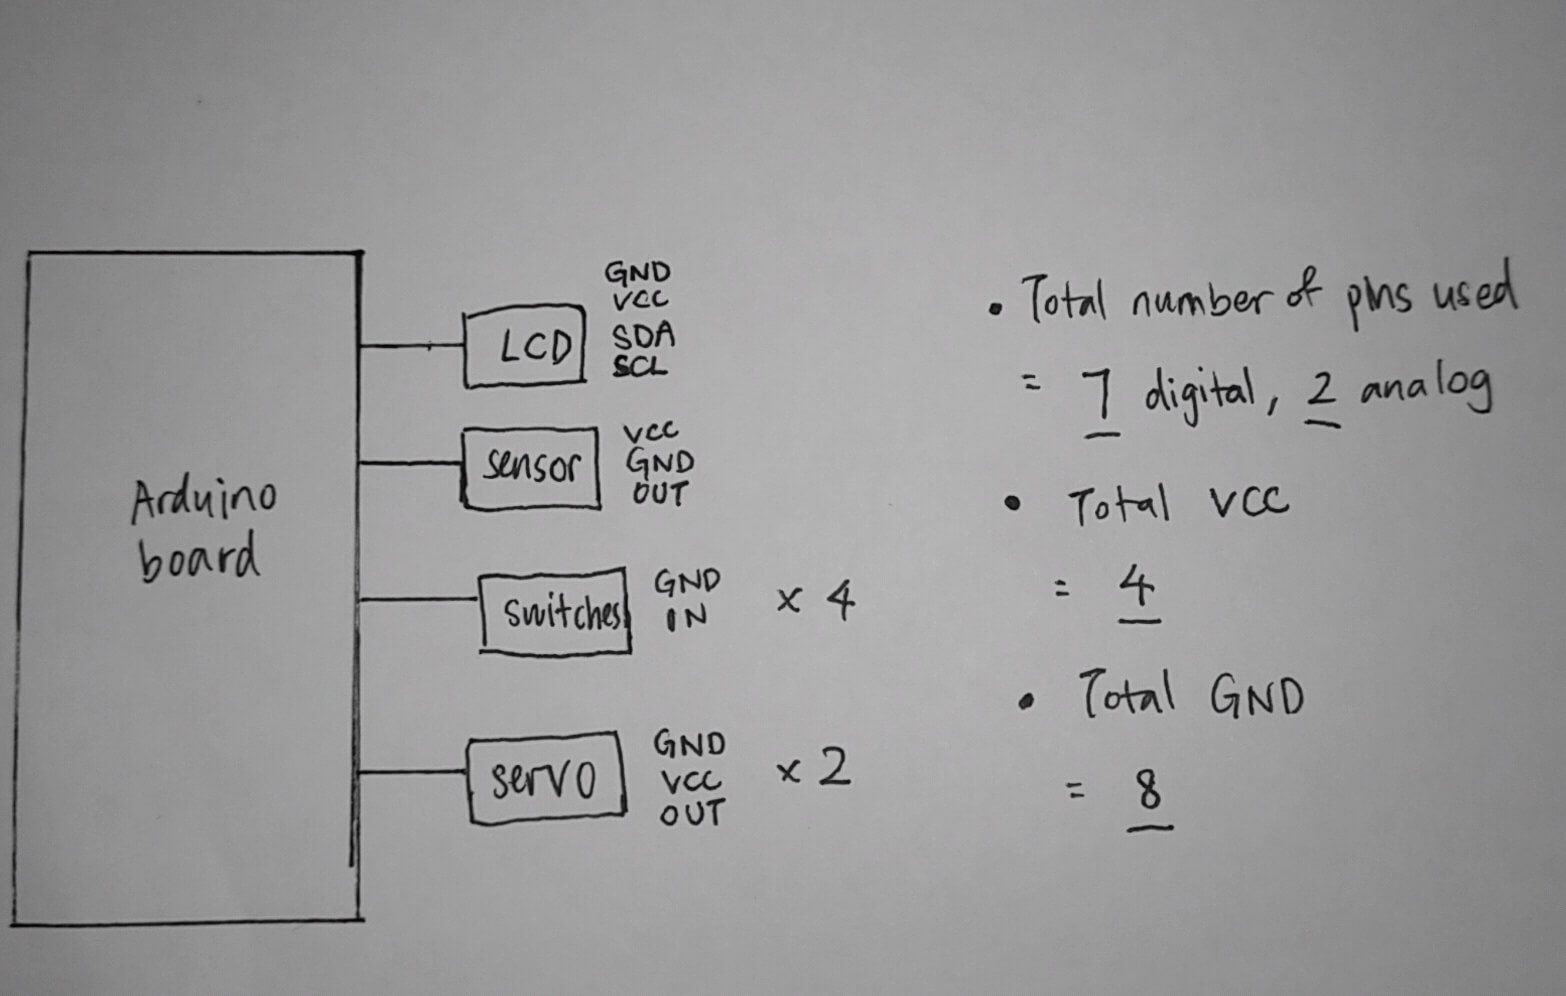 Arduino
board
LCD
GND
VCC
SDA
SCL
sensor
VCC
GND
OUT
switches
GND
IN
x 4
servo
GND
VCC
OUT
x 2
• Total number of pins used
= 7 digital, 2 analog
• Total VCC
= 4
• Total GND
= 8